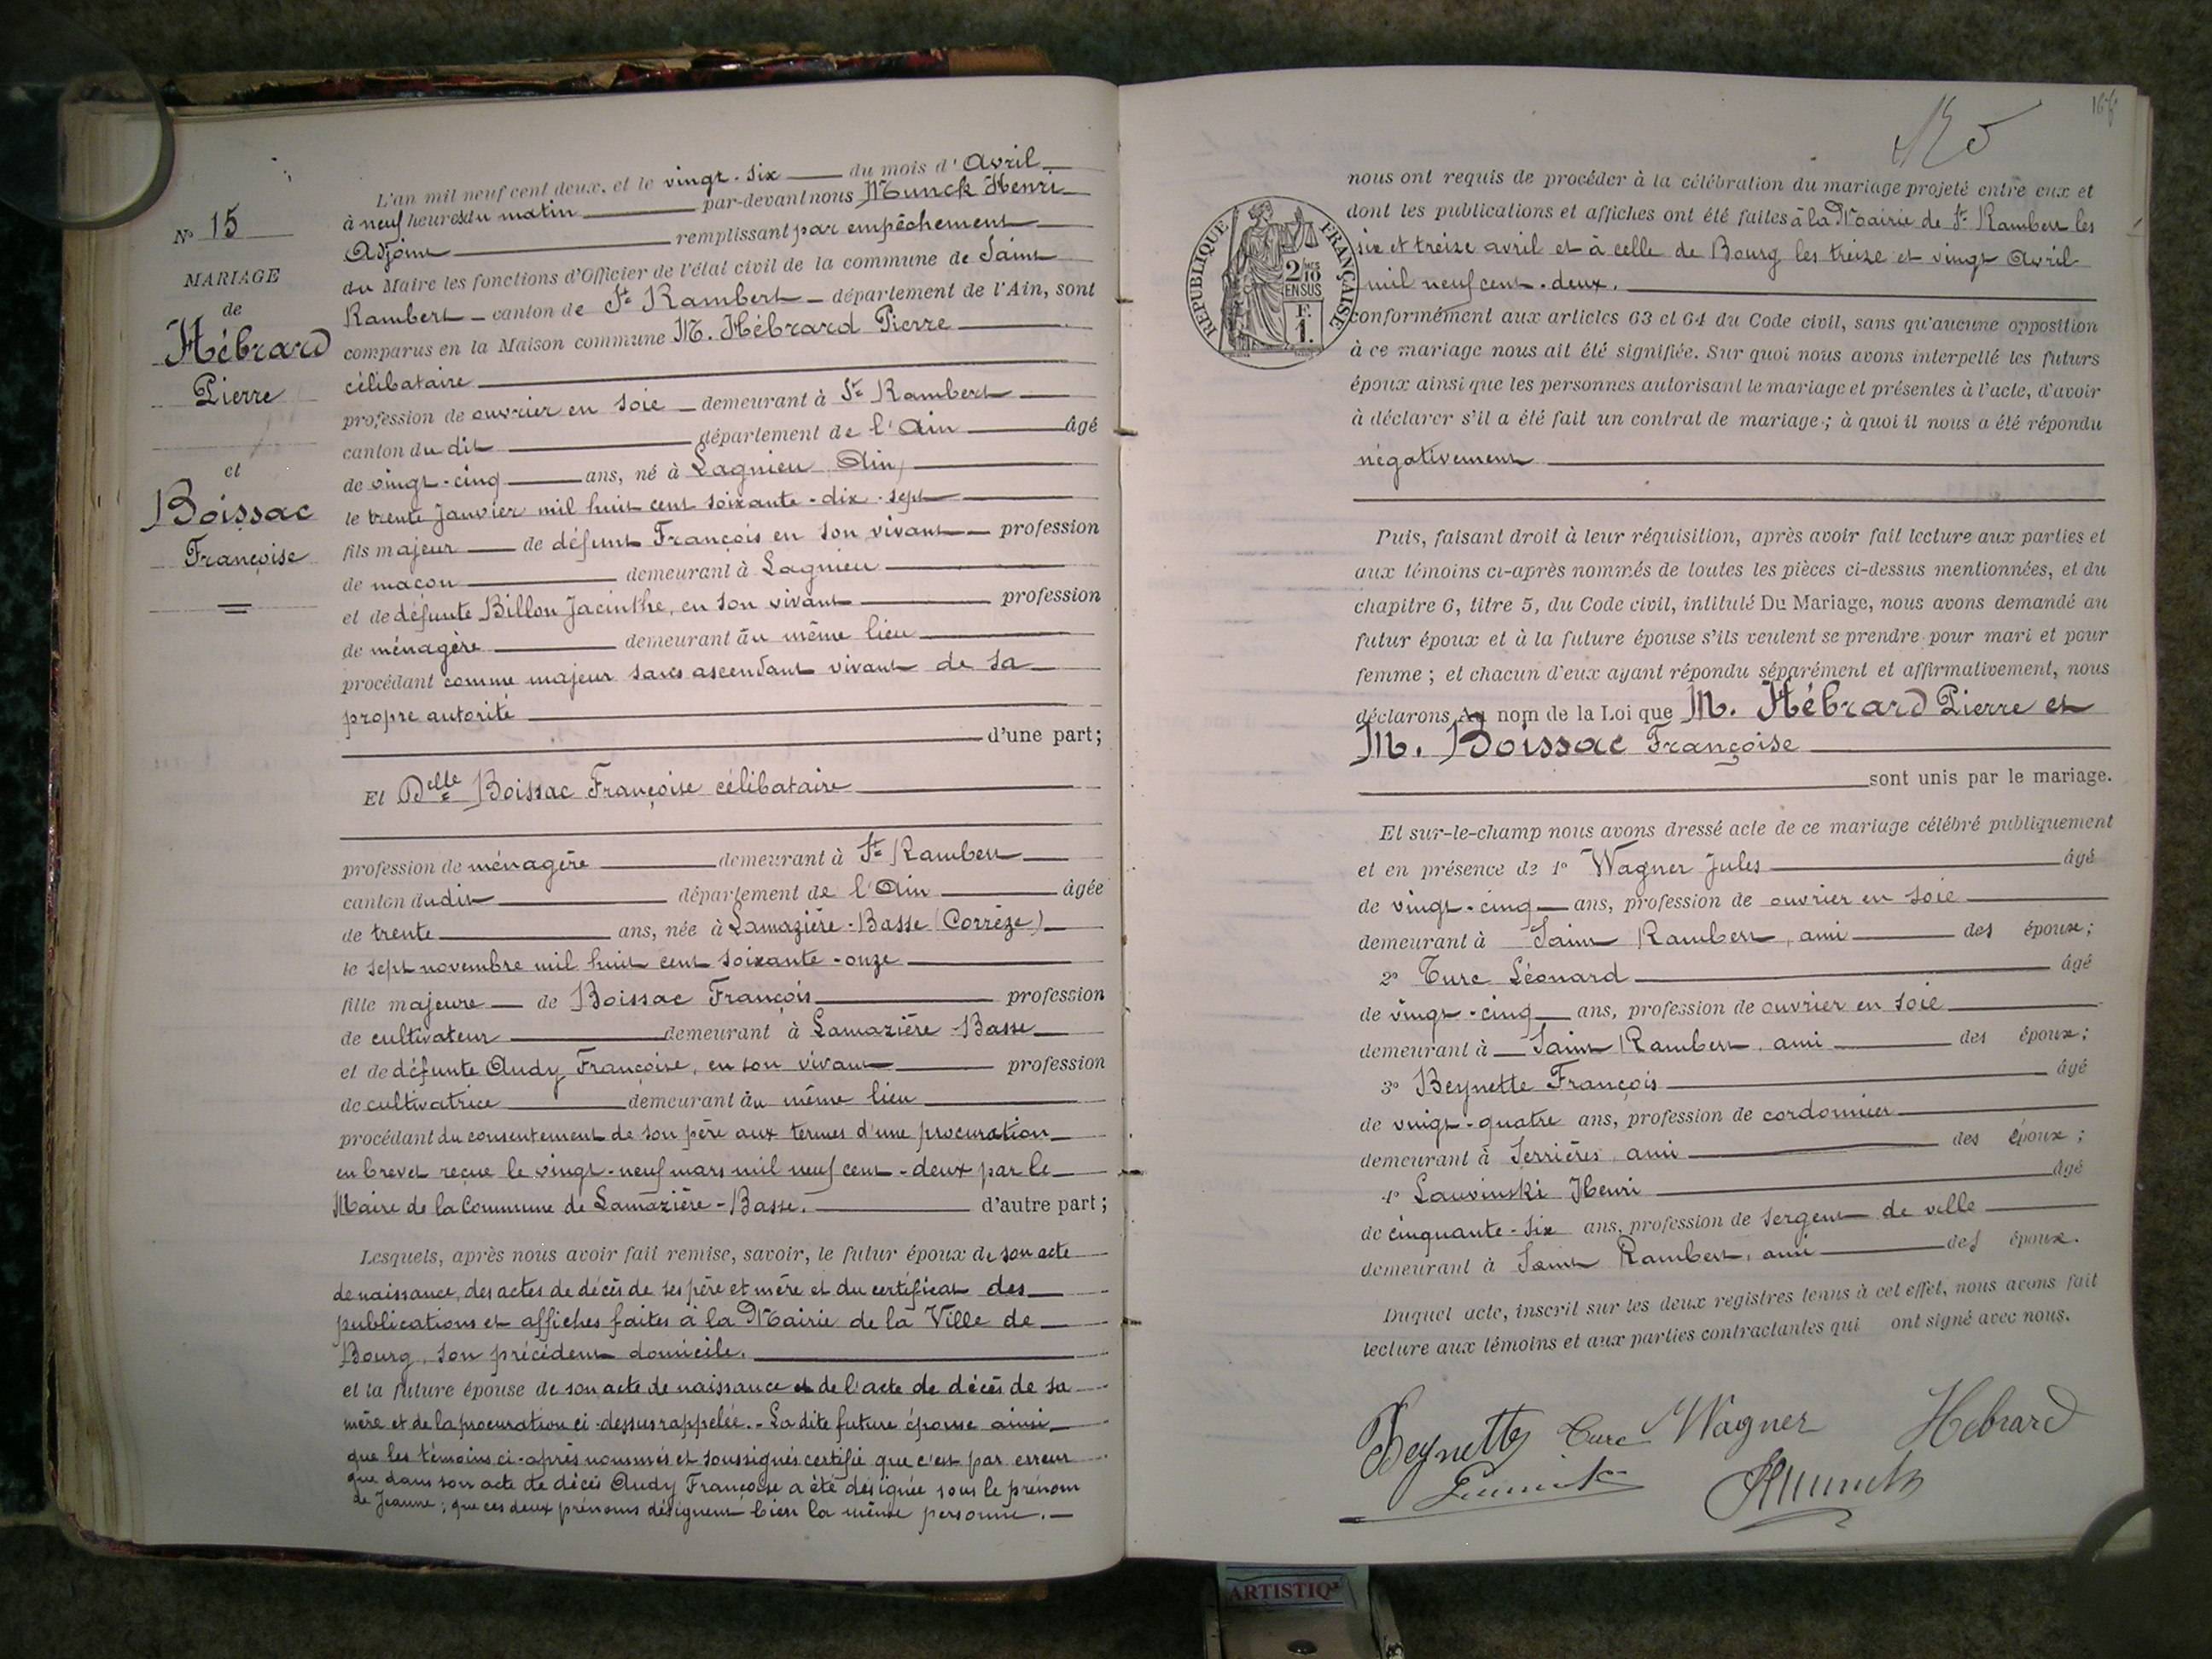 N° 15
MARIAGE
de
Hébrard
Pierre
et
Boissac
Françoise
L'an mil neuf cent deux, et le vingt-six du mois d'Avril
à neuf heures du matin par-devant nous Munck Henri
Adjoint remplissant par empêchement
du Maire les fonctions d'Officier de l'état civil de la commune de Saint
Rambert canton de St Rambert département de l'Ain, sont
comparus en la Maison commune M. Hébrard Pierre
célibataire
profession de ouvrier en soie demeurant à St Rambert
canton du dit département de l'Ain âgé
de vingt-cinq ans, né à Lagnieu Ain,
le trente Janvier mil huit cent soixante-dix-sept
fils majeur de défunt François en son vivant profession
de maçon demeurant à Lagnieu
et de défunte Billon Jacinthe, en son vivant profession
de ménagère demeurant au même lieu
procédant comme majeur sans ascendant vivant de sa
propre autorité
d'une part;
Et Delle Boissac Françoise célibataire
profession de ménagère demeurant à St Rambert
canton dudit département de l'Ain âgée
de trente ans, née à Lamazière-Basse (Corrèze)
le sept novembre mil huit cent soixante-onze
fille majeure de Boissac François profession
de cultivateur demeurant à Lamazière-Basse
et de défunte Audy Françoise, en son vivant profession
de cultivatrice demeurant au même lieu
procédant du consentement de son père aux termes d'une procuration
en brevet reçue le vingt-neuf mars mil neuf cent-deux par le
Maire de la Commune de Lamazière-Basse. d'autre part;
Lesquels, après nous avoir fait remise, savoir, le futur époux de son acte
de naissance, des actes de décès de ses père et mère et du certificat des
publications et affiches faites à la Mairie de la Ville de
Bourg, son précédent domicile.
et la future épouse de son acte de naissance et de l'acte de décès de sa
mère et de la procuration ci-dessus rappelée. - La dite future épouse ainsi
que les témoins ci-après nommés et soussignés certifie que c'est par erreur
que dans son acte de décès Audy Françoise a été désignée sous le prénom
de Jeanne; que ces deux prénoms désignent bien la même personne.
nous ont requis de procéder à la célébration du mariage projeté entre eux et
dont les publications et affiches ont été faites à la Mairie de St Rambert les
six et treize avril et à celle de Bourg les treize et vingt Avril
mil neuf cent-deux.
RÉPUBLIQUE FRANÇAISE
2/10
EN SUS
F.
1.
conformément aux articles 63 et 64 du Code civil, sans qu'aucune opposition
à ce mariage nous ait été signifiée. Sur quoi nous avons interpellé les futurs
époux ainsi que les personnes autorisant le mariage et présentes à l'acte, d'avoir
à déclarer s'il a été fait un contrat de mariage; à quoi il nous a été répondu
négativement
Puis, faisant droit à leur réquisition, après avoir fait lecture aux parties et
aux témoins ci-après nommés de toutes les pièces ci-dessus mentionnées, et du
chapitre 6, titre 5, du Code civil, intitulé Du Mariage, nous avons demandé au
futur époux et à la future épouse s'ils veulent se prendre pour mari et pour
femme; et chacun d'eux ayant répondu séparément et affirmativement, nous
déclarons Au nom de la Loi que M. Hébrard Pierre et
M. Boissac Françoise
sont unis par le mariage.
Et sur-le-champ nous avons dressé acte de ce mariage célébré publiquement
et en présence de 1° Wagner Jules âgé
de vingt-cinq ans, profession de ouvrier en soie
demeurant à Saint Rambert, ami des époux;
2° Turc Léonard âgé
de vingt-cinq ans, profession de ouvrier en soie
demeurant à Saint Rambert, ami des époux;
3° Beynette François âgé
de vingt-quatre ans, profession de cordonnier
demeurant à Serrières, ami des époux;
4° Lauvinski Henri âgé
de cinquante-six ans, profession de sergent de ville
demeurant à Saint Rambert, ami des époux.
Duquel acte, inscrit sur les deux registres tenus à cet effet, nous avons fait
lecture aux témoins et aux parties contractantes qui ont signé avec nous.
Beynette Turc Wagner Hebrard
HMunck
ARTISTIQ